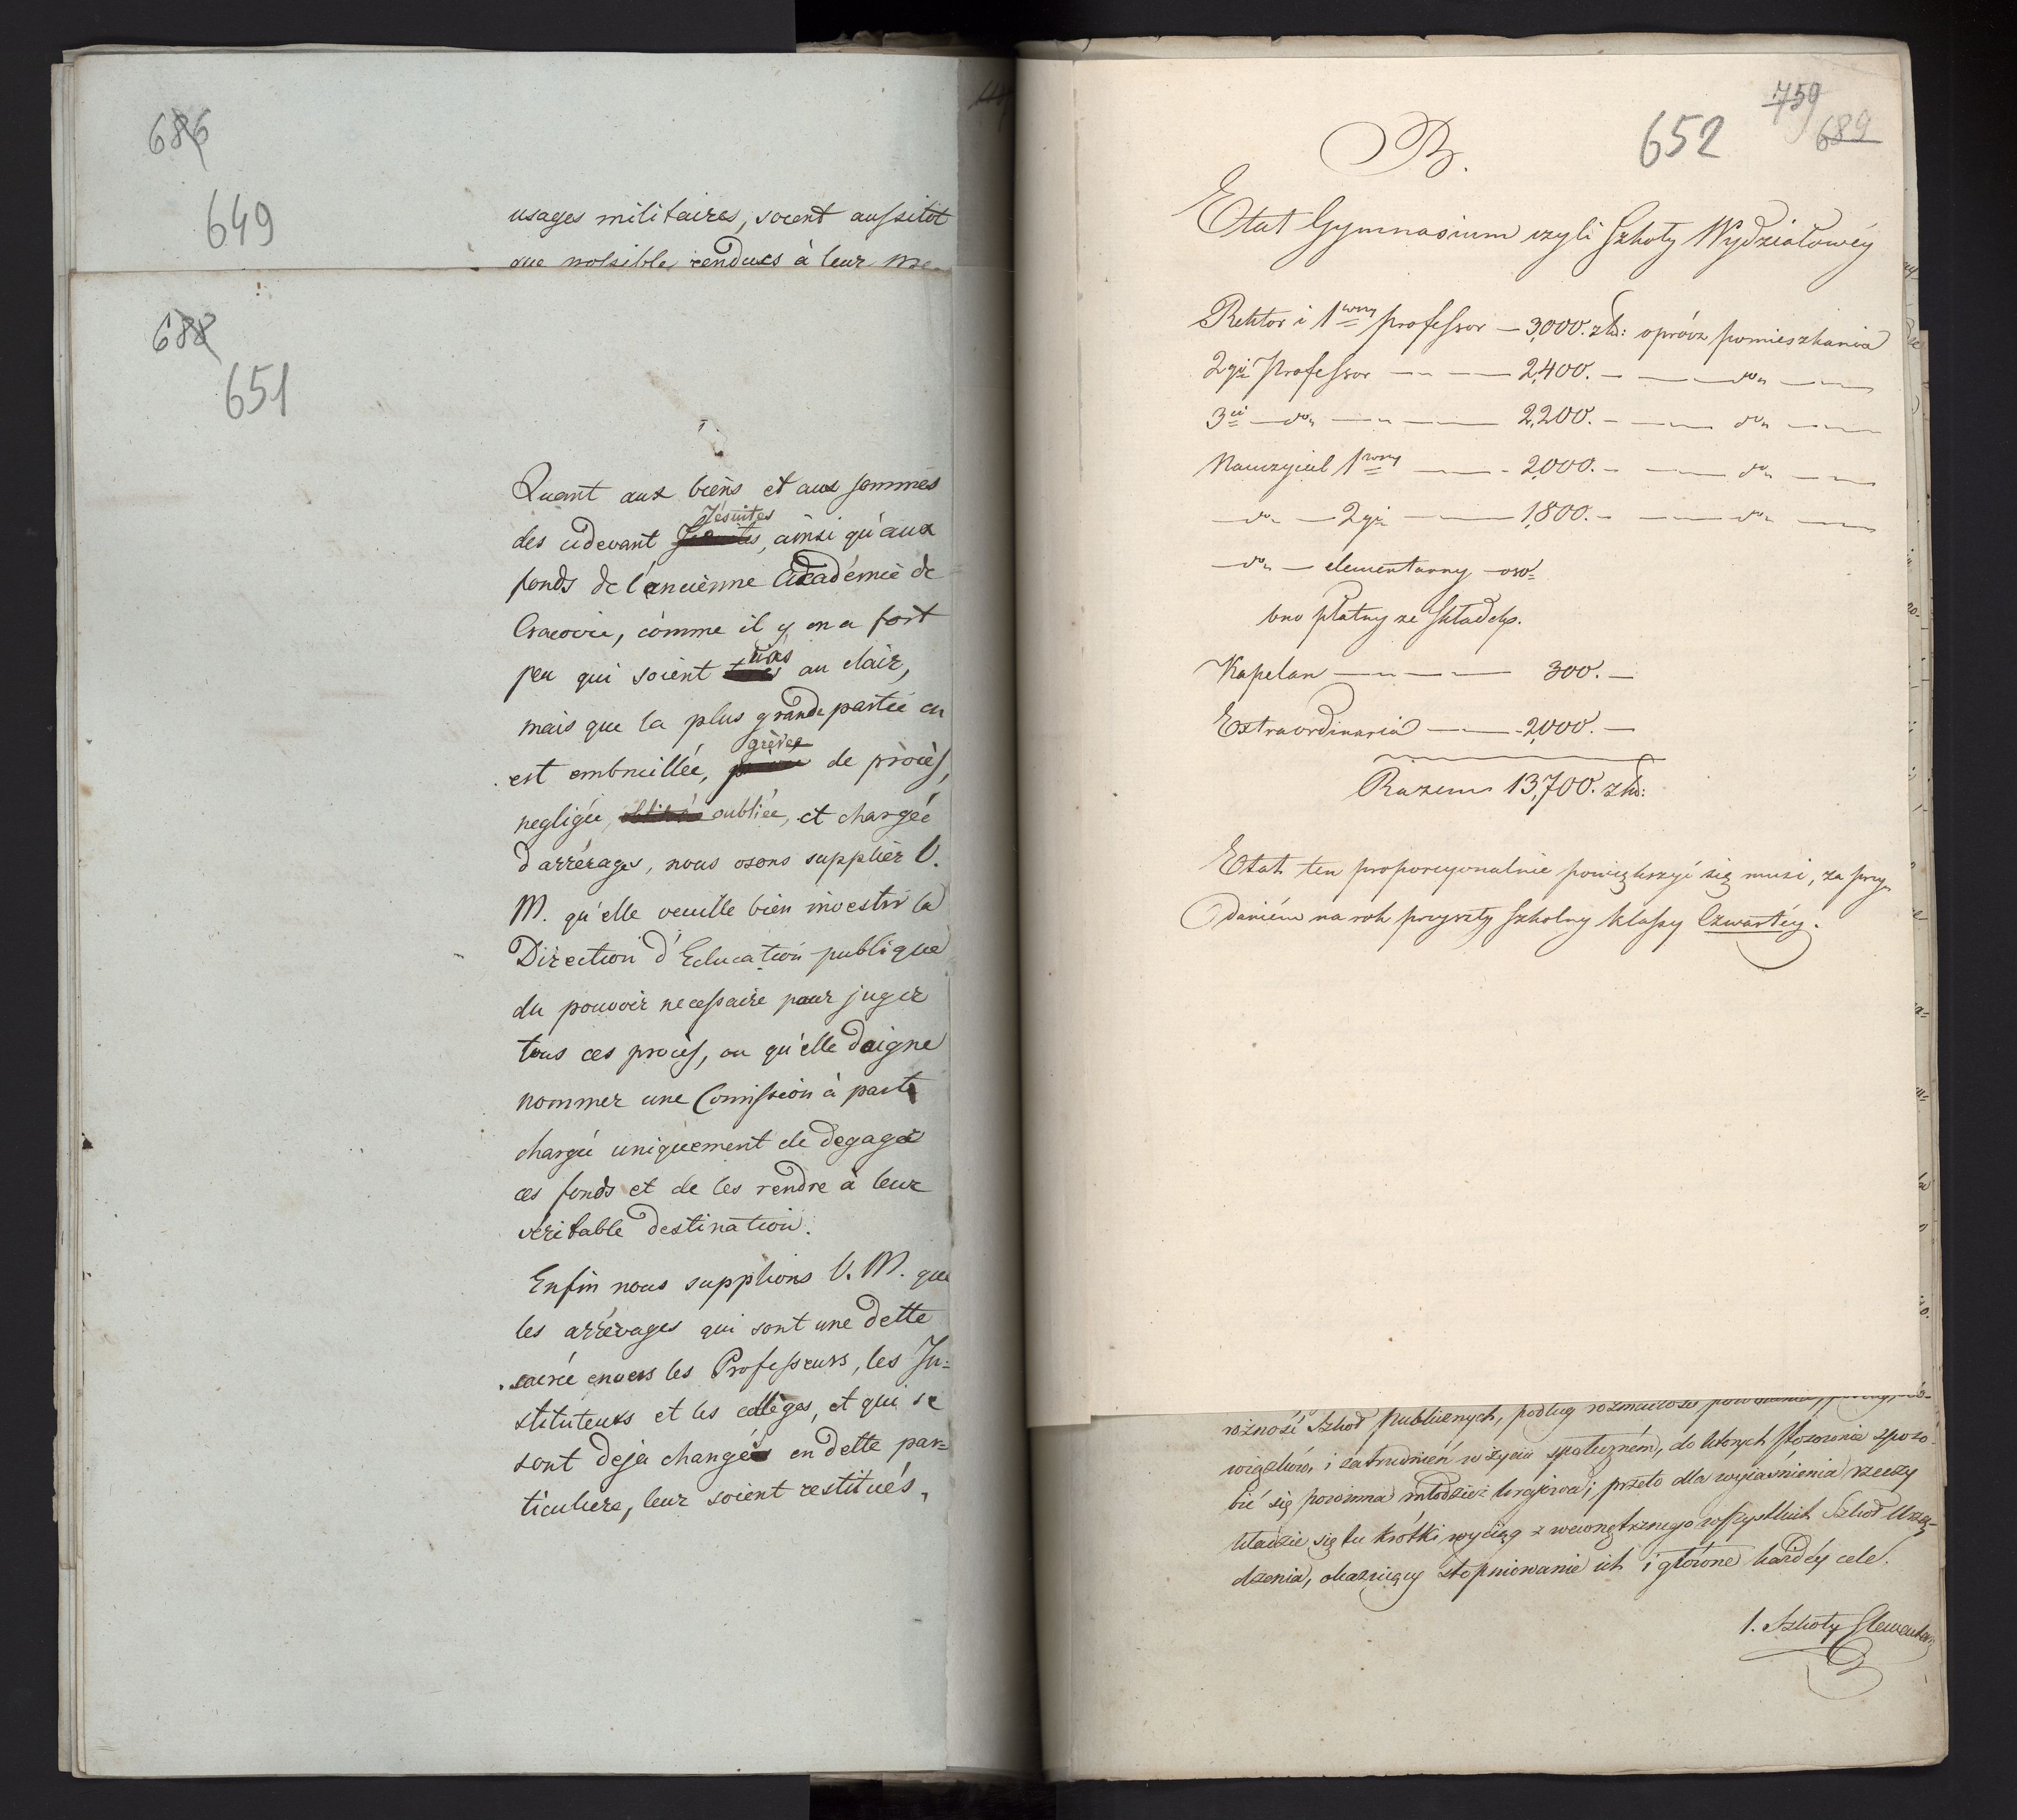 686
649
usages militaires, soient aussitôt
que possible rendues à leur
688
651
Quant aux biens et aux sommes
des cidevant Jésuites, ainsi qu'aux
fonds de l'ancienne Académie de
Cracovie, comme il y en a fort
peu qui soient au clair,
mais que la plus grande partie en
est embrouillée, grévée de procès,
negligée, oubliée, et chargée
d'arrérages, nous osons supplier V.
M. qu'elle veuille bien investir la
Direction d'Education publique
du pouvoir necessaire pour juger
tous ces procès, ou qu'elle daigne
nommer une Comission à part
chargée uniquement de degager
ces fonds et de les rendre à leur
veritable destination.
Enfin nous supplions V. M. que
les arrérages qui sont une dette
sacrée envers les Professeurs, les In=
stituteurs et les colleges, et qui se
sont deja changés en dette par=
ticuliere, leur soient restitués,
759
652 689
B.
Etat Gymnasium czyli Szkoły Wydziałowéy
Rektor i 1wszy professor — 3,000. złd: oprócz pomieszkania
2gi Professor — 2,400. — do —
3ci — do — 2,200. — do —
Nauczyciel 1wszy — 2,000. — do —
do — 2gi — 1,800. — do —
do — elementarny — oso=
bno płatny ze składek.
Kapelan — 300. —
Extraordinaria — 2,000. —
Razem 13,700. złd:
Etat ten proporcyonalnie powiększyć się musi, za przy
daniém na rok przyszły szkolny klassy Czwartéy.
różność Szkoł publicznych, podług
wiązków, i zatrudnień w życiu społeczném, do których stosownie sposo-
bić się powinna młodzież kraiowa; przeto dla wyiaśnienia rzeczy
kładzie się tu krótki wyciąg z wewnętrznego wszystkich Szkoł Urzą-
dzenia, okazuiący stopniowanie ich i głowne każdéy cele.
1. Szkoły Elementar